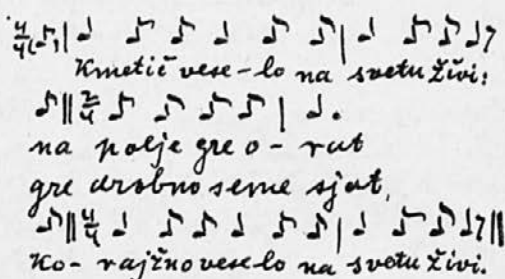 4/4 (♪) | ♩ ♪ ♪ ♩ ♪ ♪ | ♩ ♪ ♪ ♩ 7
Kmetič vese-lo na svetu živi:
♪ || 2/4 ♪ ♪ ♪ ♪ | ♩.
na polje gre o-rat
gre drobno seme sjat,
♪ || 4/4 ♩ ♪ ♪ ♩ ♪ ♪ | ♩ ♪ ♪ ♩ 7 ||
Ko-rajžno vese-lo na svetu živi.